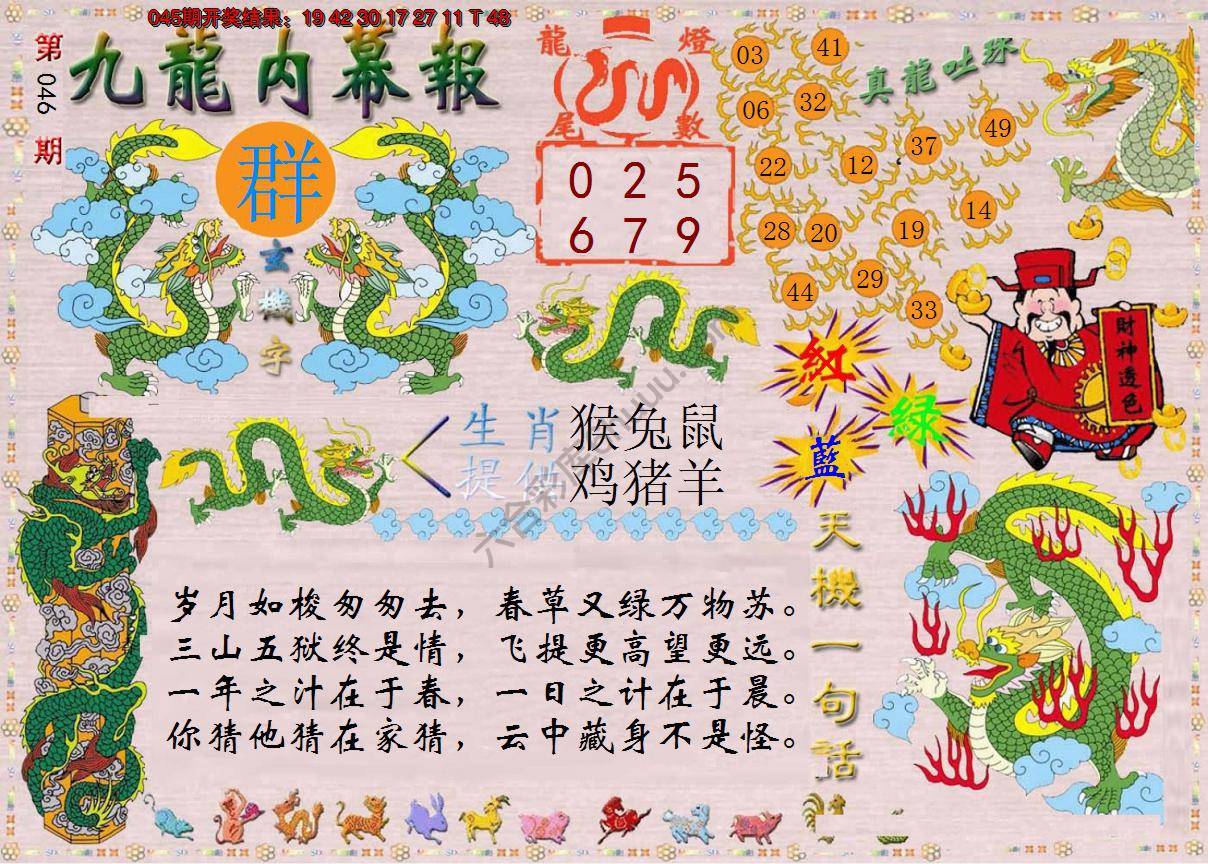 045期开奖结果：19 42 30 17 27 11 T 48
第046期
九龍内幕報
群
玄機字
龍燈
尾數
0 2 5
6 7 9
真龍吐珠
03
41
06
32
22
12
37
49
28
20
19
14
44
29
33
財神透色
紅
绿
藍
生肖
提供
猴兔鼠
鸡猪羊
岁月如梭匆匆去，春草又绿万物苏。
三山五狱终是情，飞提更高望更远。
一年之汁在于春，一日之计在于晨。
你猜他猜在家猜，云中藏身不是怪。
天機一句話